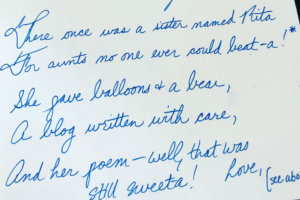 There once was a sister named Rita
For aunts no one ever could beat-a!*
She gave balloons & a bear,
A blog written with care,
And her poem – well, that was
still sweeta! Love,
(see abo